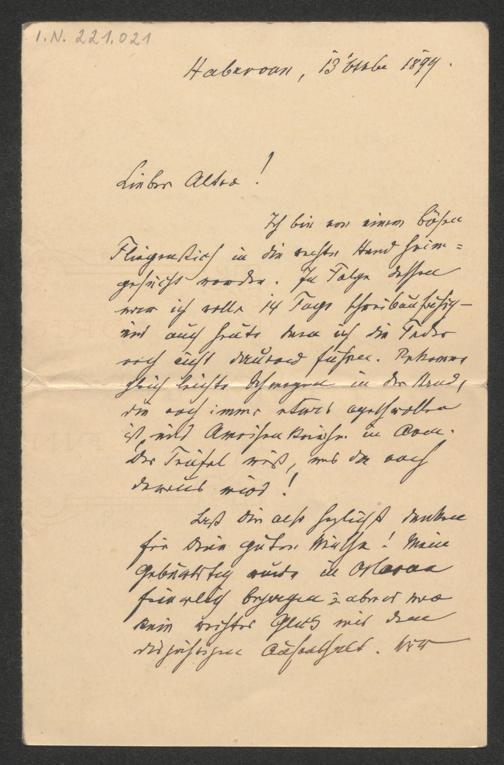 I.N. 221.021
Habrovan, 13 Oktobe 1894.
Lieber Alter!
Ich bin von einem bösen
Fliegenstich in die rechte Hand heim=
gesucht worden. In Folge dessen
war ich volle 14 Tage schreibunfähig –
und auch heute kann ich die Feder
noch nicht dauernd führen. Bekomme
gleich leichte Schmerzen in der Hand,
die noch immer etwas geschwollen
ist, und Ameisenkriechen im Arm.
Der Teufel weiß, was da noch
daraus wird!
Laß Dir also herzlichst danken
für Deine guten Wünsche! Mein
Geburtstag wurde in Oslavan
feierlich begangen; aber es war
kein rechtes Glück mit dem
diesjährigen Aufenthalt.